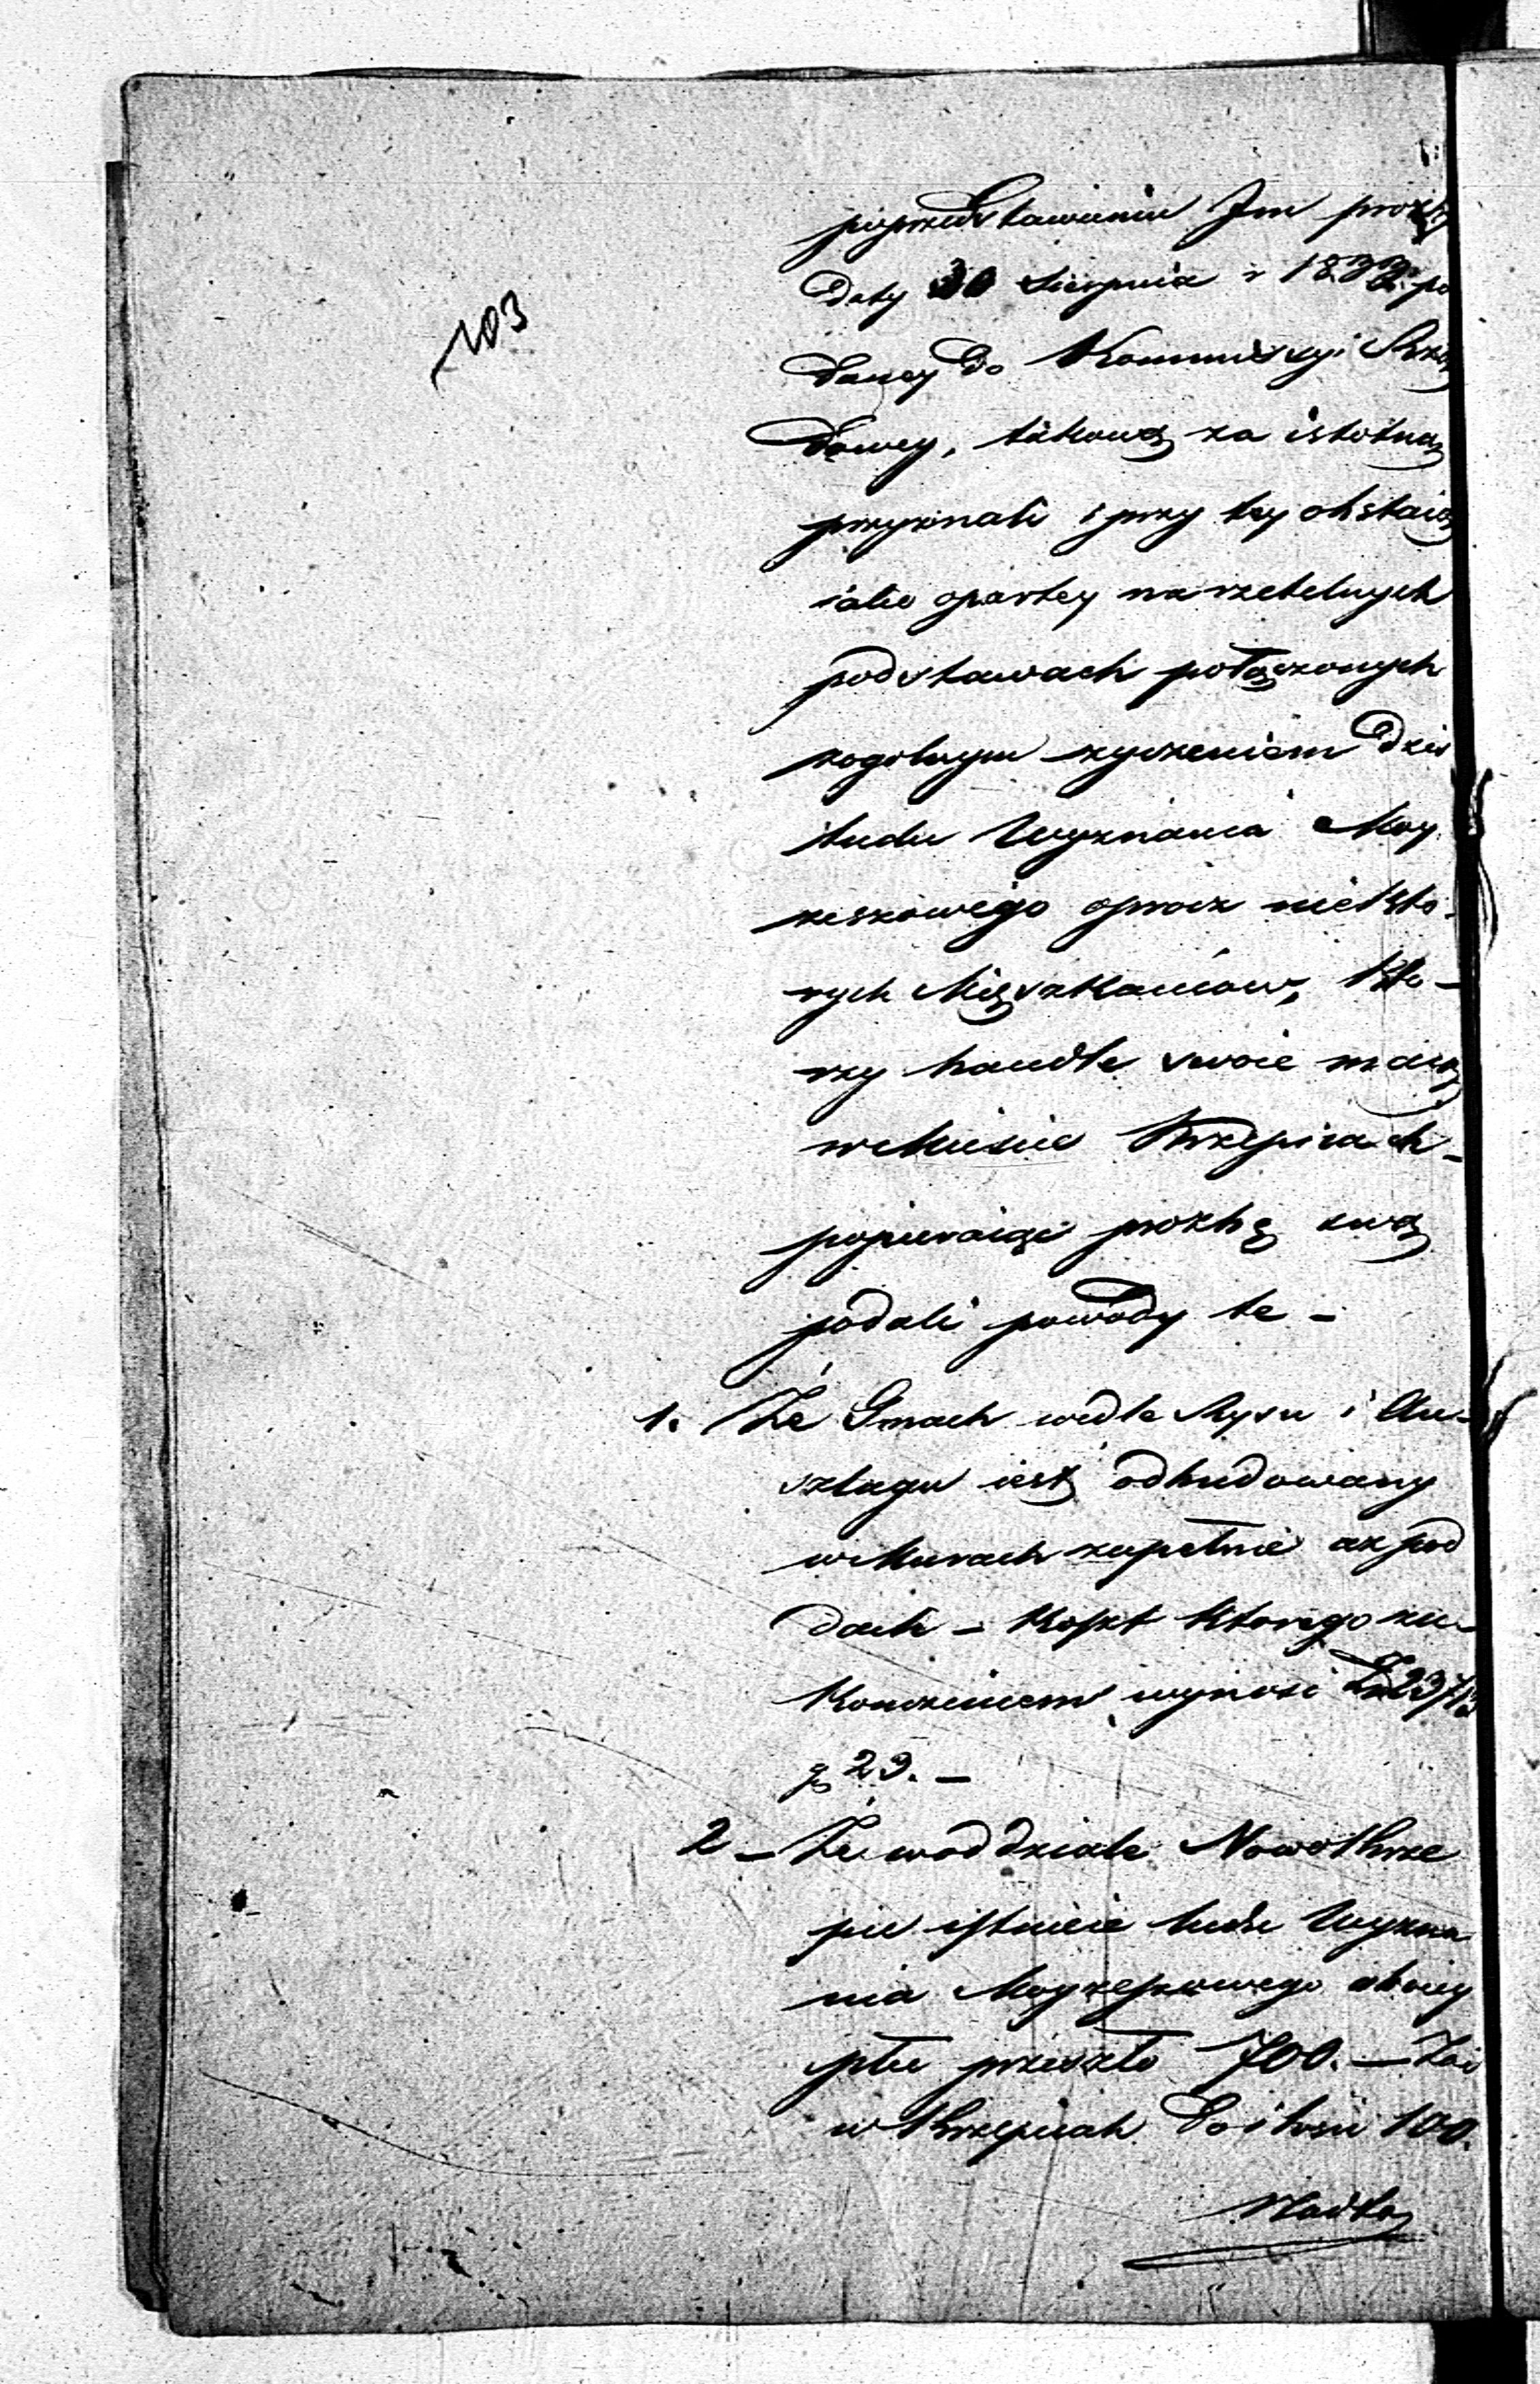 103
poprzedstawieniu Im prożb
Daty 30 Sierpnia r 1833. po
daney do Kommissyi Rzą
dowey, takową za istotną
przyznali i przy tey obstaią
iako opartey na rzetelnych
podstawach połączonych
zogolnym życzeniem Dzis
ludu Wyznania May
zeszowego oprocz niekto-
rych Mięszkancow, Kto-
rzy handle swoie maią
w Miescie Krzepicach -
popieraiąc prozbę swą
podali powody te -
1. Że Gmach wedle Rysu i An-
szlagu iest odbudowany
w Murach zupełnie aż pod
dach - Koszt Ktorego zu-
Konczeniem wynosi Zł 23713
g 29. -
2 - Że w oddziale Nowokrze
pie istnieie ludu Wyzna
nia Mayzeszowego oboiey
płci przeszło 700. - Zaś
w Krzepicach do ilosci 100.